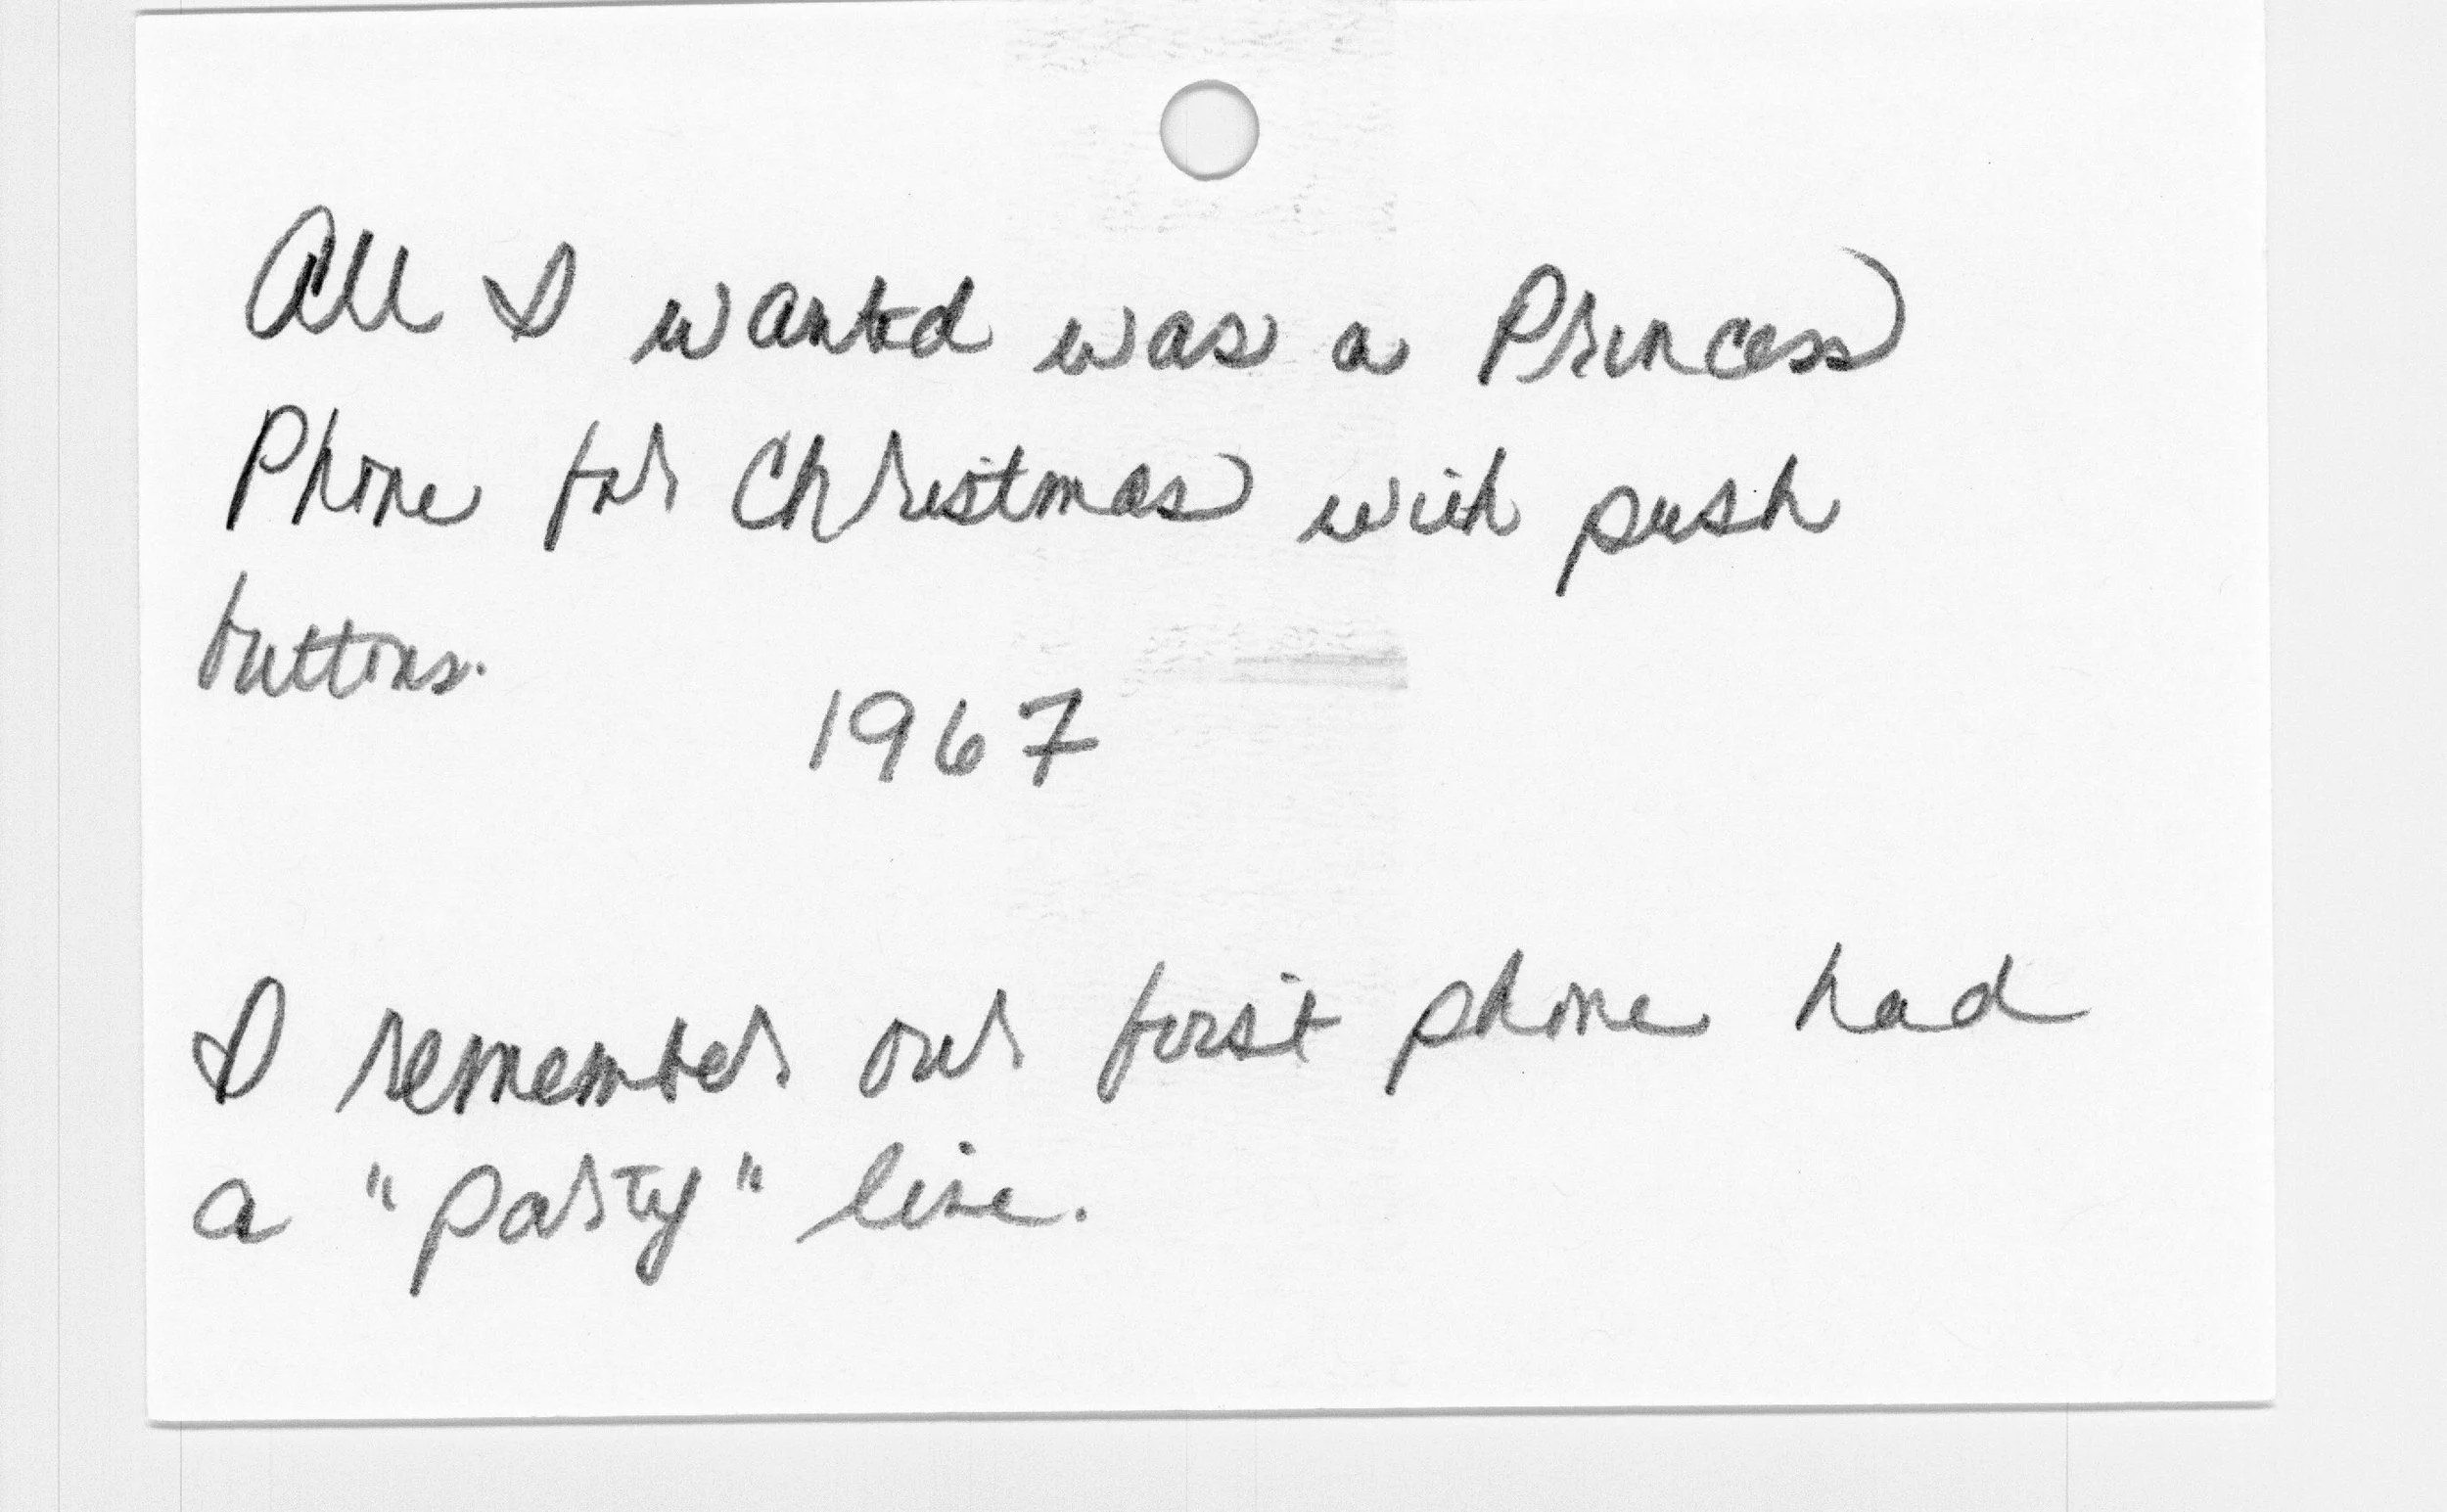 All I wanted was a Princess
Phone for Christmas with push
buttons.
1967
I remember our first phone had
a "party" line.